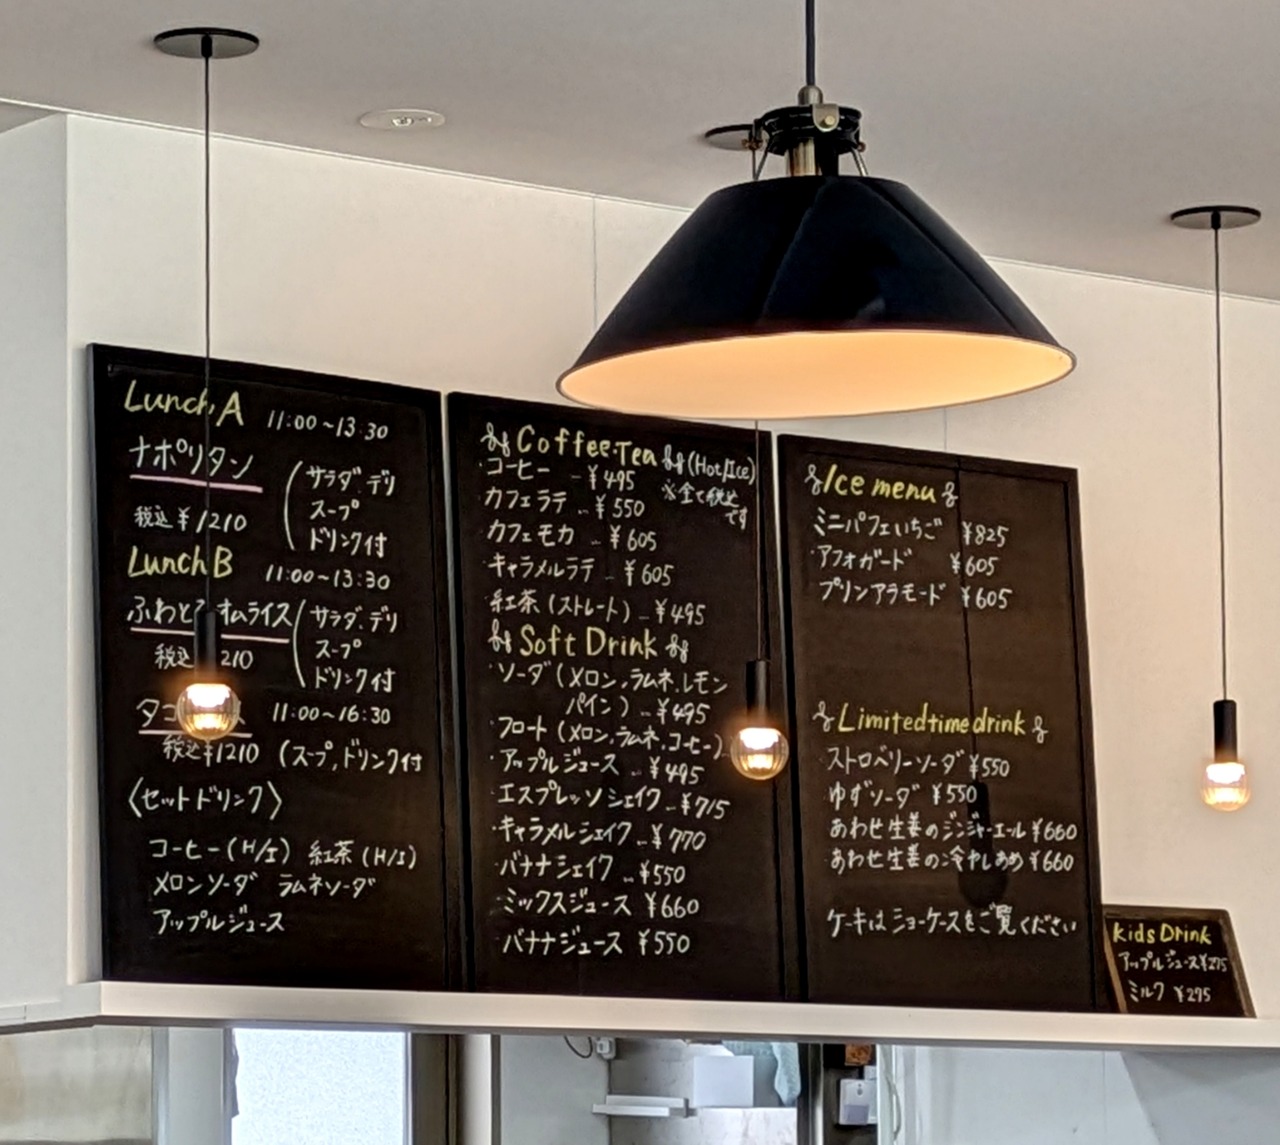 Lunch A 11:00～13:30
ナポリタン (サラダ、デリ
スープ
税込 ¥1210 ドリンク付
Lunch B 11:00～13:30
ふわと オムライス (サラダ、デリ
スープ
税込 210 ドリンク付
タコ 11:00～16:30
税込¥1210 (スープ、ドリンク付
〈セットドリンク〉
コーヒー(H/I) 紅茶(H/I)
メロンソーダ ラムネソーダ
アップルジュース
Coffee・Tea (Hot/Ice)
・コーヒー - ¥495 ※全て税込
です
・カフェラテ .. ¥550
・カフェモカ .. ¥605
・キャラメルラテ - ¥605
・紅茶(ストレート) - ¥495
Soft Drink
・ソーダ(メロン、ラムネ、レモン
パイン) .. ¥495
・フロート(メロン、ラムネ、コーヒー)
・アップルジュース .. ¥495
・エスプレッソシェイク - ¥715
・キャラメルシェイク - ¥770
・バナナシェイク .. ¥550
・ミックスジュース ¥660
・バナナジュース ¥550
Ice menu
・ミニパフェいちご ¥825
・アフォガード ¥605
・プリンアラモード ¥605
Limited time drink
・ストロベリーソーダ ¥550
・ゆずソーダ ¥550
あわせ生姜のジンジャーエール ¥660
あわせ生姜の冷やしあめ ¥660
ケーキはショーケースをご覧ください
Kids Drink
アップルジュース¥275
ミルク ¥275